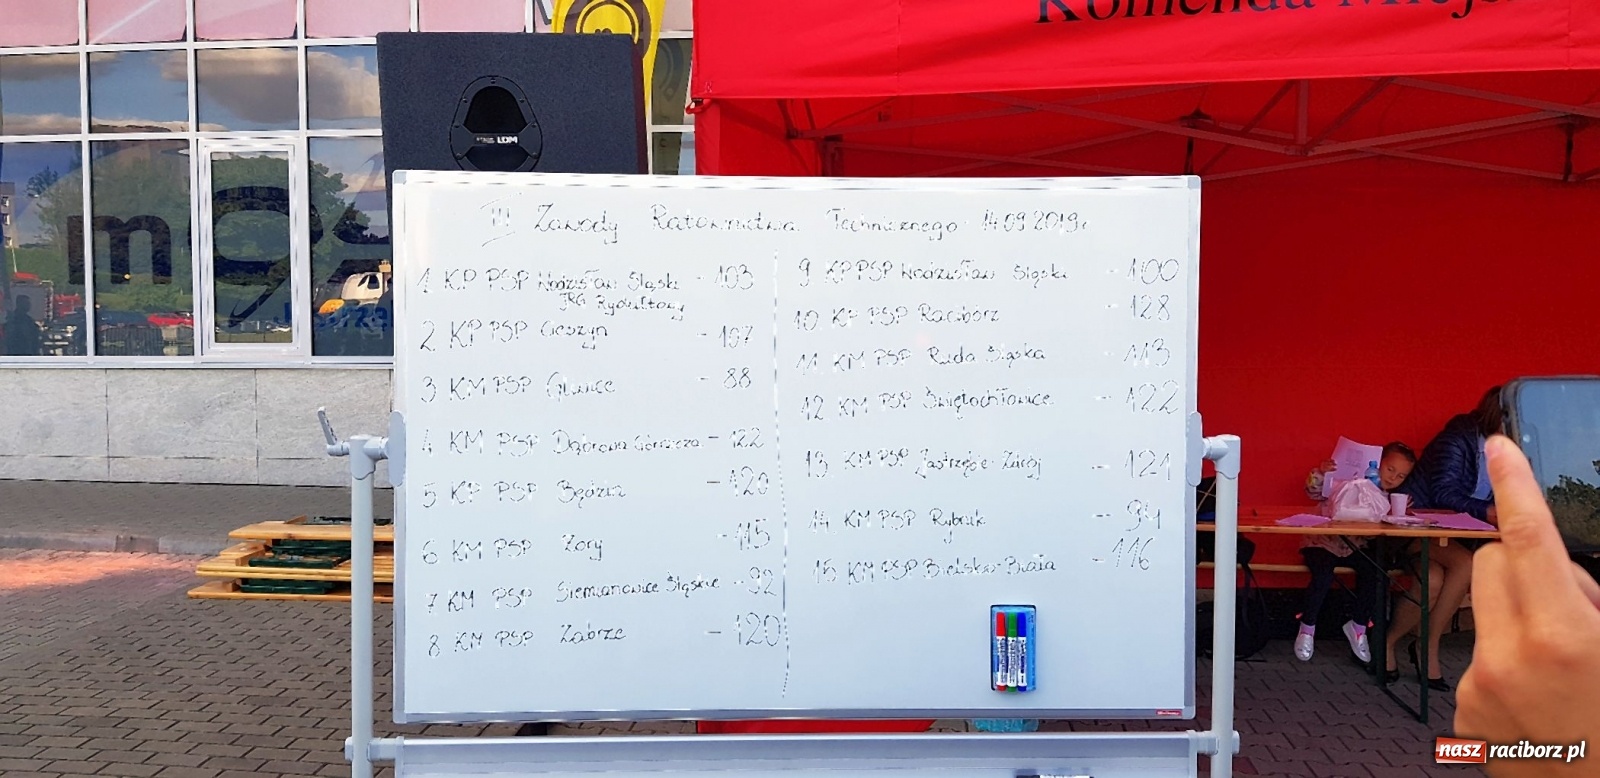 Komenda Miejs
LDM
III Zawody Ratownictwa Technicznego 14.09.2019r
1. KP PSP Wodzisław Śląski - 103
JRG Rydułtowy
2. KP PSP Cieszyn - 107
3 KM PSP Gliwice - 88
4 KM PSP Dąbrowa Górnicza - 122
5 KP PSP Będzin - 120
6 KM PSP Żory - 115
7 KM PSP Siemianowice Śląskie - 92
8 KM PSP Zabrze - 120
9 KP PSP Wodzisław Śląski - 100
10. KP PSP Racibórz - 128
11. KM PSP Ruda Śląska - 113
12. KM PSP Świętochłowice - 122
13. KM PSP Jastrzębie-Zdrój - 121
14. KM PSP Rybnik - 94
15 KM PSP Bielsko-Biała - 116
nasz raciborz.pl